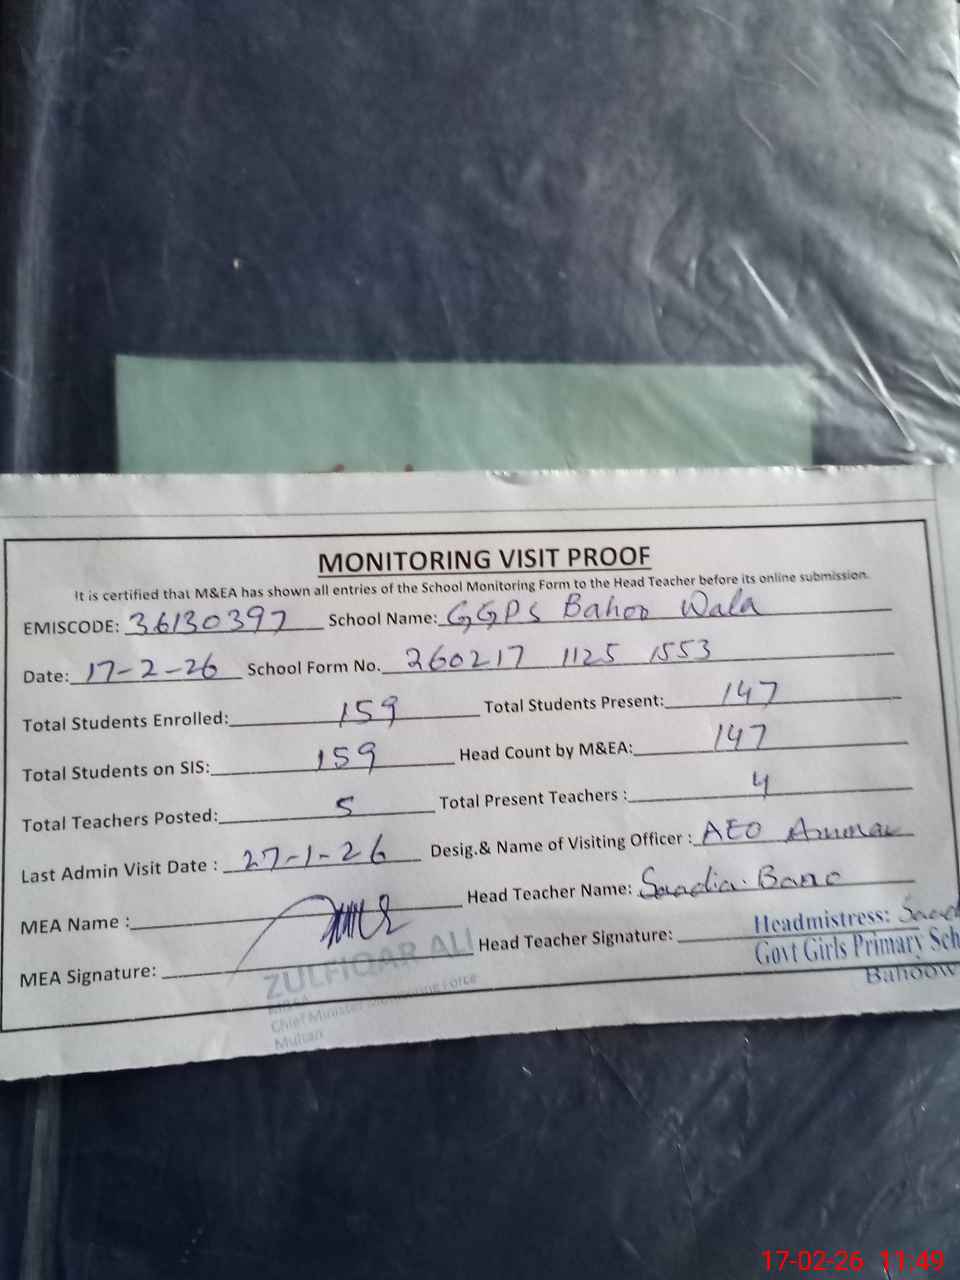 MONITORING VISIT PROOF
It is certified that M&EA has shown all entries of the School Monitoring Form to the Head Teacher before its online submission.
EMISCODE: 36130397 School Name: GGPS Bahoo Wala
Date: 17-2-26 School Form No. 260217 1125 1553
Total Students Enrolled: 159 Total Students Present: 147
Total Students on SIS: 159 Head Count by M&EA: 147
Total Teachers Posted: 5 Total Present Teachers : 4
Last Admin Visit Date : 27-1-26 Desig.& Name of Visiting Officer : AEO Ammar
MEA Name : Head Teacher Name: Saadia Bano
MEA Signature: Head Teacher Signature:
ZULFIQAR ALI
Chief Minister Monitoring Force
Multan
Headmistress:
Govt Girls Primary Sch
Bahoow
17-02-26 11:49